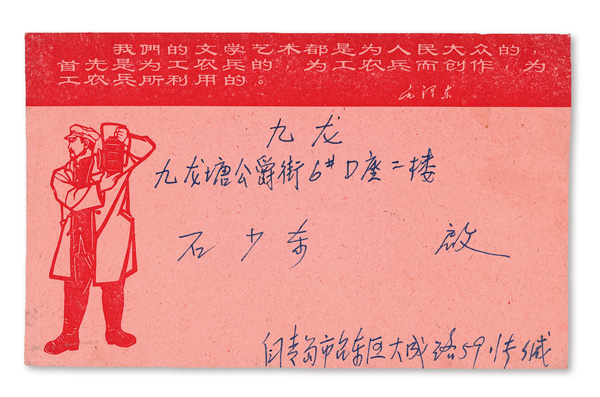 我們的文学艺术都是为人民大众的，
首先是为工农兵的，为工农兵而创作，为
工农兵所利用的。
毛泽东
九龙
九龙塘公爵街6#D座二楼
石少东 啟
自青岛市台东区大成路59号缄